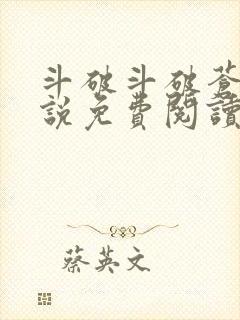 斗破斗破蒼
說免費閱讀
蔡英文